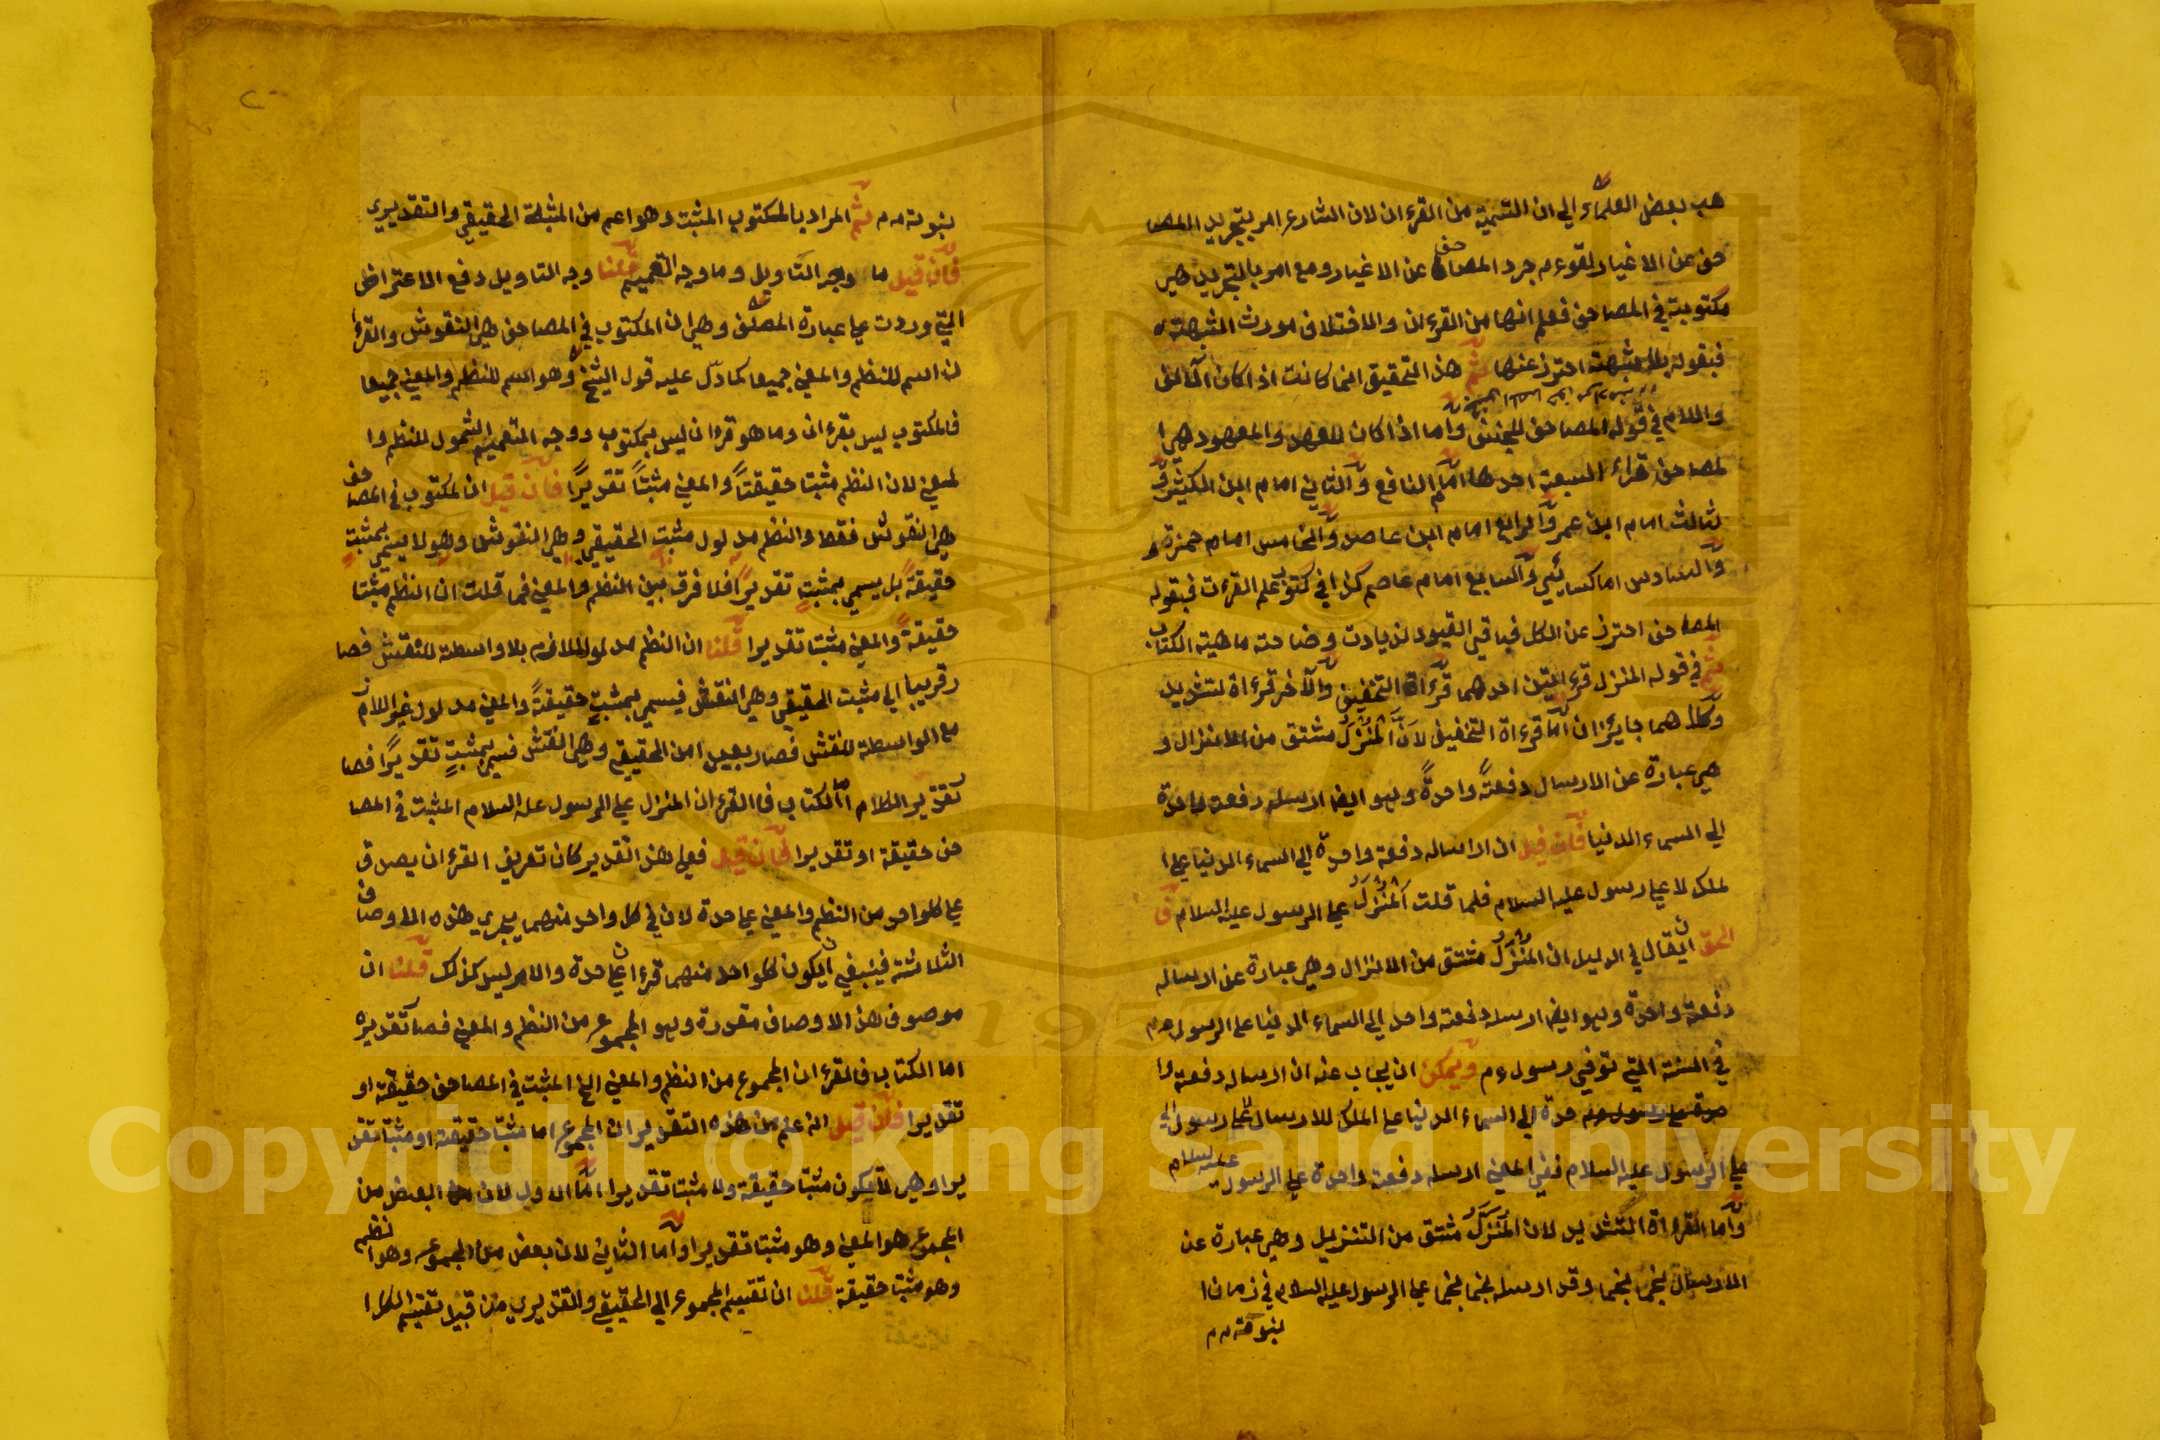 هب بعض العلماء الي ان التسمية من القرءان لان الشارع امر بتجريد المصا
حف عن الاغيار لقوله م جرد المصاحف عن الاغيار ومع امر بالتجريد هي
مكتوبة في المصاحف فعلم انها من القرءان والاختلاف مورث الشبهة
فبقوله بلا شبهة احترز عنها ثم هذ التحقيق انما كانت اذا كان الالف
واللام في قوله المصاحف للجنس واما اذا كان للعهد والمعهود هي ا
لمصاحف قراء السبعة احدها امام النافع والثاني امام ابن الكثير وا
لثالث امام ابن عمر والرابع امام ابن عاصر والخامس امام حمزة و
والسادس اما كسايي والسابع امام عاصم كذا في كتوب علم القرءت فبقوله
المصاحف احترز عن الكل فباقي القيود لزيادت وضاحته ماهية الكتاب
ثم في قوله المنزل قرءاتين احدهما قرءاة التخفيف والاخر قرءاة لتشديد
وكلا هما جايزان اما قرءاة التخفيف لان المنزل مشتق من الانزال و
هي عبارة عن الارسال دفعة واحدة وهو ايضا ارسله دفعة واحدة
الي السماء الدنيا فان قيل ان ارساله دفعة واحدة الي السماء الدنيا علي ا
لملك لا علي رسول عليه السلام فلما قلت المنزل علي الرسول عليه السلام ف
الحق ان يقال في الدليل ان المنزل مشتق من الانزال وهي عبارة عن ارساله
دفعة واحدة وهو ايضا ارسله دفعة واحد الي السماء الدنيا علي الرسول م
في السنة التي توفي رسول م ويمكن ان يجاب عنه ان ارساله دفعة وا
حدة الي السماء الدنيا علي الملك للارسال علي رسول
علي الرسول عليه السلام ففي المعني ارسله دفعة واحدة علي الرسول عليه سلام
واما القرءاة التشديد لان المنزل مشتق من التنزيل وهي عبارة عن
الارسال نجما نجما وقد ارسله نجما نجما علي الرسول عليه السلام في زمان ا
لنبوته م
لنبوته م ثم المراد بالمكتوب المثبت وهو اعم من المثبتة الحقيقي والتقديري
فان قيل ما وجه التاويل وما وجه التعميم قلنا وجه التاويل دفع الاعتراض
التي وردت علي عبارة المصنف وهي ان المكتوب في المصاحف هي النقوش والقرءا
ن اسم للنظم والمعني جميعا كما دل عليه قول الشيخ وهو اسم للنظم والمعني جميعا
فالمكتوب ليس بقرءان وما هو قرءان ليس بمكتوب ووجه التعميم الشمول للنظم وا
لمعني لان النظم مثبتا حقيقتا والمعني مثبتا تقديرا فان قيل ان المكتوب في المصاحف
هي النقوش فقط والنظم مدلول مثبت الحقيقي وهي النقوش وهو لا يسمي بمثبت
حقيقة بل يسمي بمثبت تقديرا فلا فرق بين النظم والمعني فما قلت ان النظم مثبتا
حقيقة والمعني مثبتا تقديرا قلنا ان النظم مدلول اللازم بلا واسطة للنقش فصا
ر قريبا الي مثبت الحقيقي وهي النقش فيسمي بمثبت حقيقة والمعني مدلول غير اللازم
مع الواسطة للنقش فصار بعيدا من الحقيقي وهي النقش فسمي بمثبت تقديرا فصا
ر تقدير الكلام اما الكتاب فالقرءان المنزل علي الرسول عليه السلام المثبت في المصا
حف حقيقة او تقديرا فان قيل فعلي هذ التقدير كان تعريف القرءان يصدق
علي كل واحد من النظم والمعني علي حدة لان في كل واحد منهما يجري هذه الاوصاف
الثلاثة فينبغي ان يكون كل واحد منهما قرءان علي حدة والامر ليس كذلك قلنا ان
موصوف هذ الاوصاف مقدرة وهو المجموع من النظم والمعني فصار تقديره
اما الكتاب فالقرءان المجموع من النظم والمعني الخ المثبت في المصاحف حقيقة او
تقديرا فان قيل انه علم من هذه التقدير ان المجموع اما مثبتا حقيقة او مثبتا تقد
يرا وهي لا يكون مثبتا حقيقة ولا مثبتا تقديرا اما الاول لان البعض من
المجموع هو المعني وهو مثبتا تقديرا واما الثاني لان بعض من المجموع وهو النظم
وهو مثبتا حقيقة قلنا ان تقسيم المجموع الي الحقيقي والتقديري من قبيل تقسيم الكل ا
Copyright © King Saud University
1957